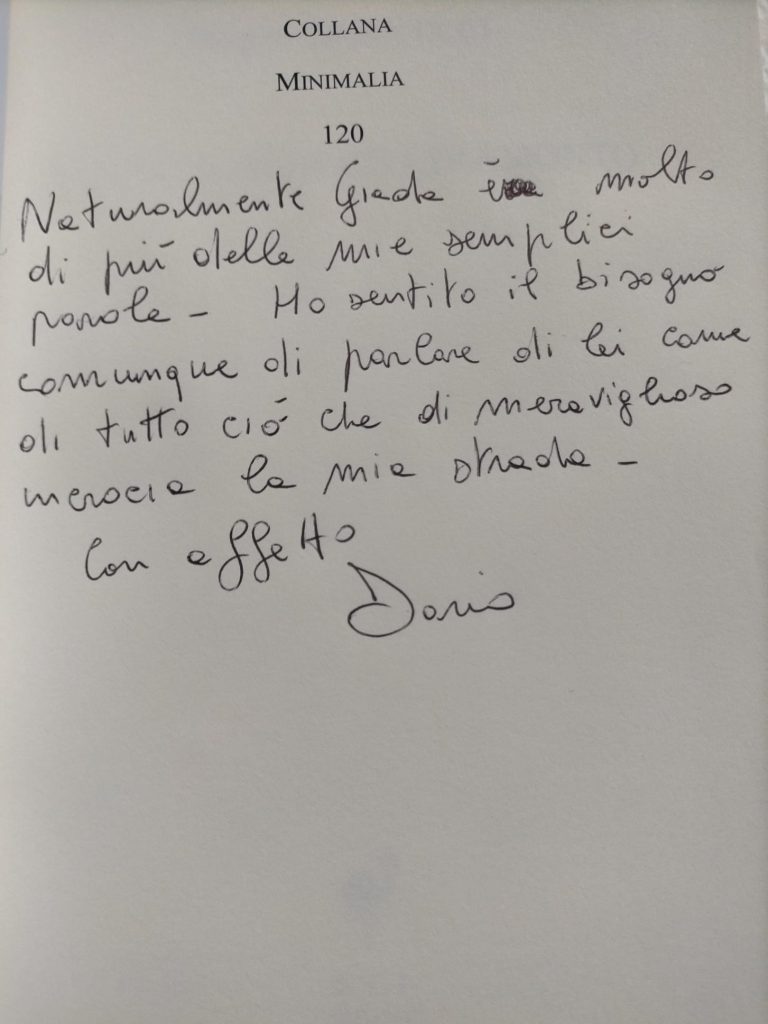 COLLANA
MINIMALIA
120
Naturalmente Giada è molto
di più delle mie semplici
parole - Ho sentito il bisogno
comunque di parlare di lei come
di tutto ciò che di meraviglioso
incrocia la mia strada -
Con affetto
Dario